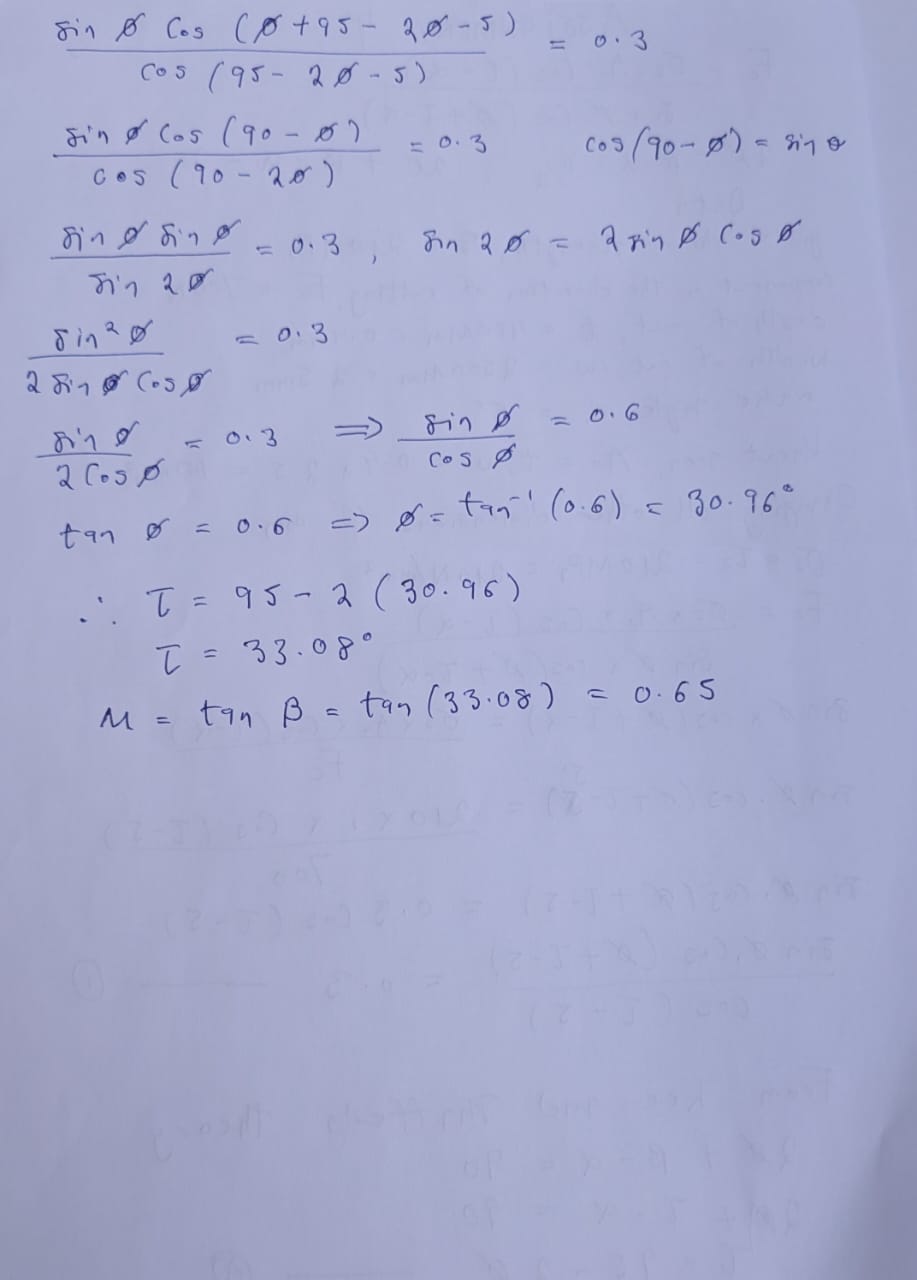 sin ø cos (ø + 95 - 2ø - 5) / cos (95 - 2ø - 5) = 0.3
sin ø cos (90 - ø) / cos (90 - 2ø) = 0.3 cos (90 - ø) = sin θ
sin ø sin ø / sin 2ø = 0.3 , sin 2ø = 2 sin ø cos ø
sin² ø / 2 sin ø cos ø = 0.3
sin ø / 2 cos ø = 0.3 ⟹ sin ø / cos ø = 0.6
tan ø = 0.6 => ø = tan⁻¹ (0.6) = 30.96°
∴ τ = 95 - 2 (30.96)
τ = 33.08°
M = tan β = tan (33.08) = 0.65